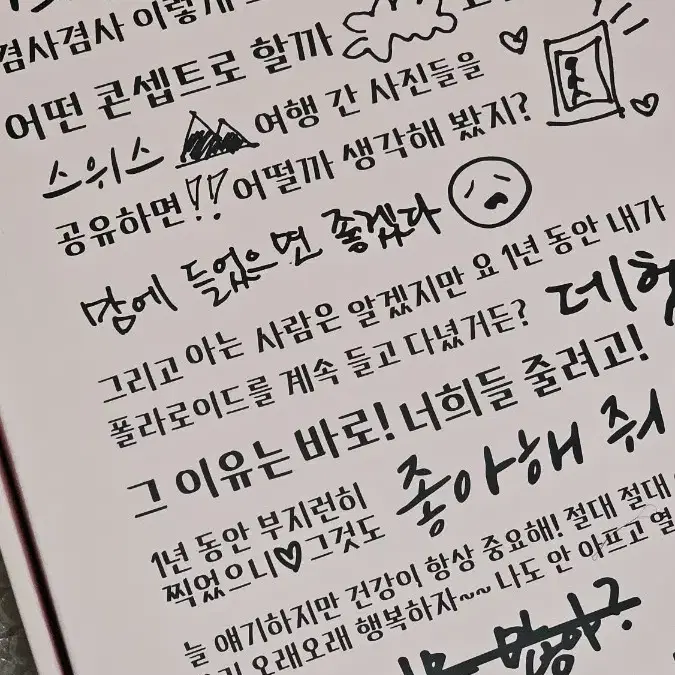 겸사겸사 이렇게
어떤 콘셉트로 할까
스위스 여행 간 사진들을
공유하면!! 어떨까 생각해 봤지?
맘에 들었으면 좋겠다
그리고 아는 사람은 알겠지만 요 1년 동안 내가
폴라로이드를 계속 들고 다녔거든? 데헷
그 이유는 바로! 너희들 줄려고!
1년 동안 부지런히 좋아해 줘
찍었으니♥ 그것도
늘 얘기하지만 건강이 항상 중요해! 절대 절대
오래오래 행복하자~~ 나도 안 아프고 열